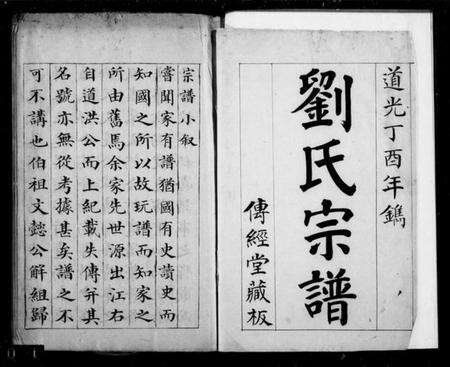 道光丁酉年鐫
劉氏宗譜
傳經堂藏板
宗譜小叙
嘗聞家有譜猶國有史讀史而
知國之所以故玩譜而知家之
所由舊馬余家先世源出江右
自道洪公而上紀載失傳并其
名號亦無從考據甚矣譜之不
可不講也伯祖文懿公解組歸